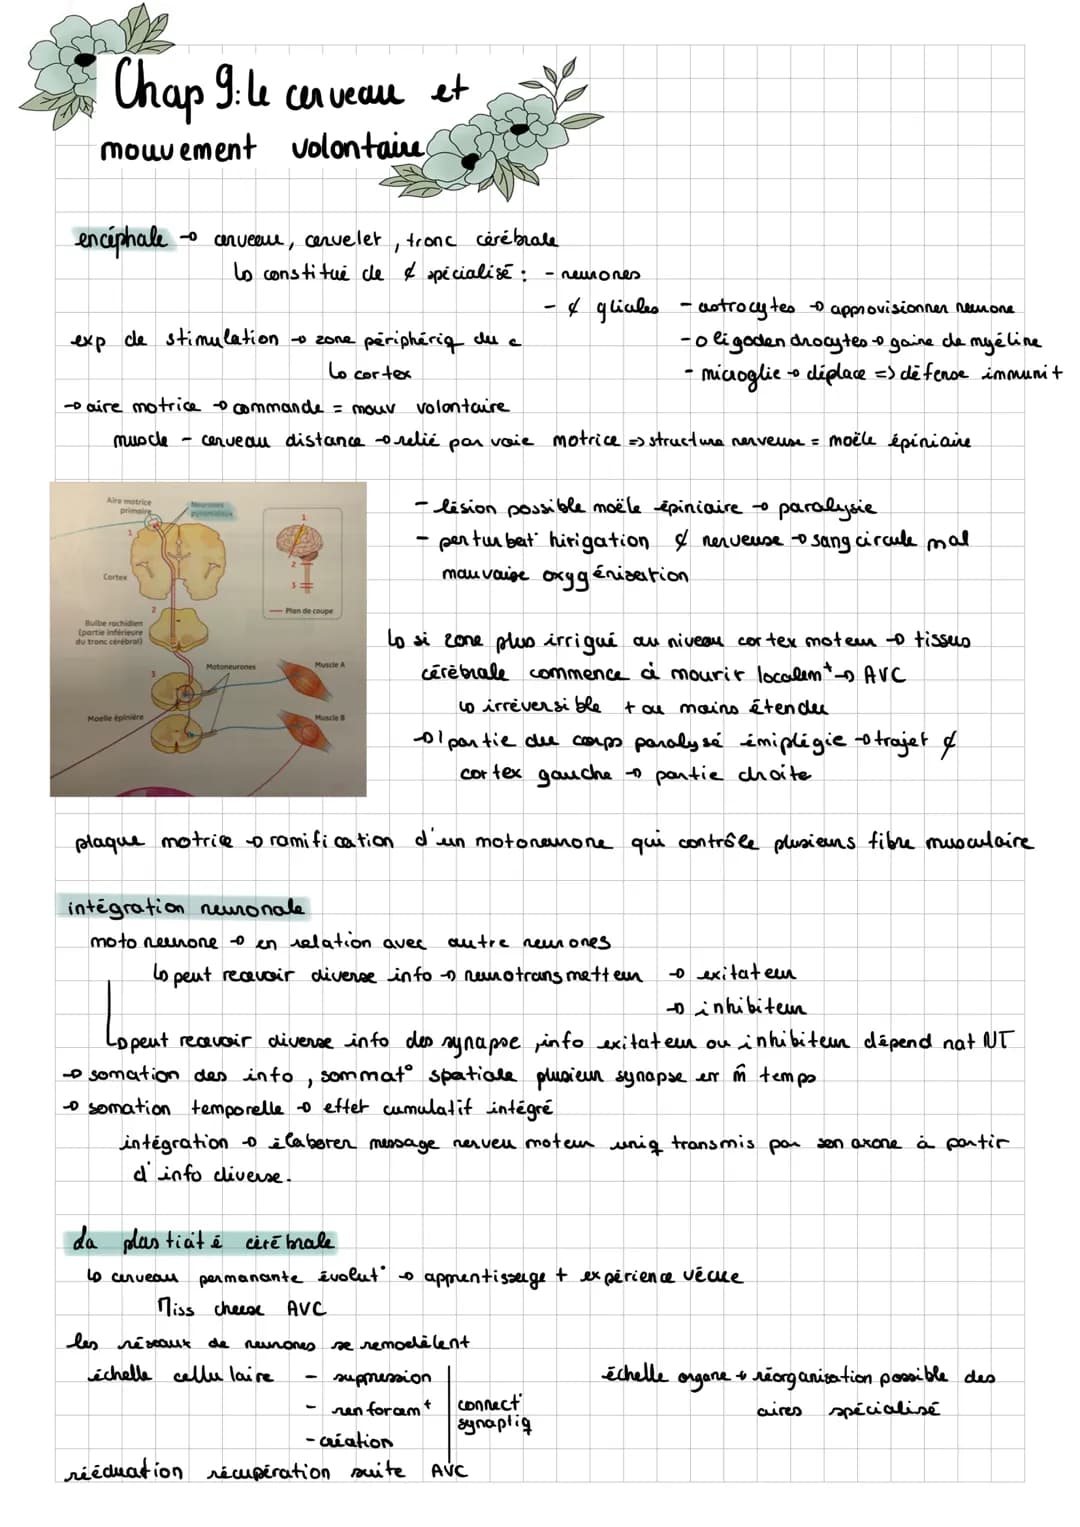 Chap 9: le cerveau et
mouvement volontaire
encéphale → cerveau, cervelet, tronc cérébrale
↳ constitué de ¢ spécialisé : - neurones
- ¢ gliales - astrocytes → approvisionner neurone
exp de stimulation → zone périphériq du c
- oligodendrocytes → gaine de myéline
↳ cortex
- microglie → déplace => défense immunit
→ aire motrice → commande = mouv volontaire
muscle - cerveau distance → relié par voie motrice => structure nerveuse = moële épiniaire
Aire motrice primaire
Neurones pyramidaux
1
1
2
3
Cortex
Plan de coupe
2
Bulbe rachidien
(partie inférieure
du tronc cérébral)
3
Motoneurones
Muscle A
Moelle épinière
Muscle B
- lésion possible moële épiniaire → paralysie
- perturbat° hirigation ¢ nerveuse → sang circule mal
mauvaise oxygénisation
↳ si zone plus irrigué au niveau cortex moteur → tissus
cérébrale commence à mourir localemt → AVC
↳ irréversible + ou moins étendu
→ 1 partie du corps paralysé émiplégie → trajet ¢
cortex gauche → partie droite
plaque motrice → ramification d'un motoneurone qui contrôle plusieurs fibre musculaire
intégration neuronale
motoneurone → en relation avec autre neurones
↳ peut recevoir diverse info → neurotransmetteur → exitateur
→ inhibiteur
↳ peut recevoir diverse info des synapse, info exitateur ou inhibiteur dépend nat NT
→ somation des info, sommat° spatiale plusieur synapse en m̂ temps
→ somation temporelle → effet cumulatif intégré
intégration → élaborer message nerveu moteur uniq transmis par son axone à partir
d'info diverse.
La plasticité cérébrale
↳ cerveau permanante évolut° → apprentissage + expérience vécue
Miss cheese AVC
les réseaux de neurones se remodèlent
échelle cellulaire - supression
- renforcemt
- création
connect°
synaptiq
échelle organe → réorganisation possible des
aires spécialisé
rééducation récupération suite AVC